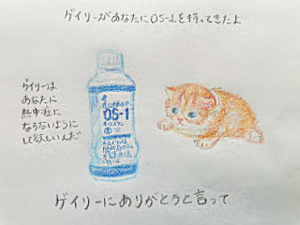 ゲイリーがあなたにOS-1を持ってきたよ
ゲイリーは
あなたに
熱中症に
ならないように
して欲しいんだ
OS-1
ゲイリーにありがとうと言って